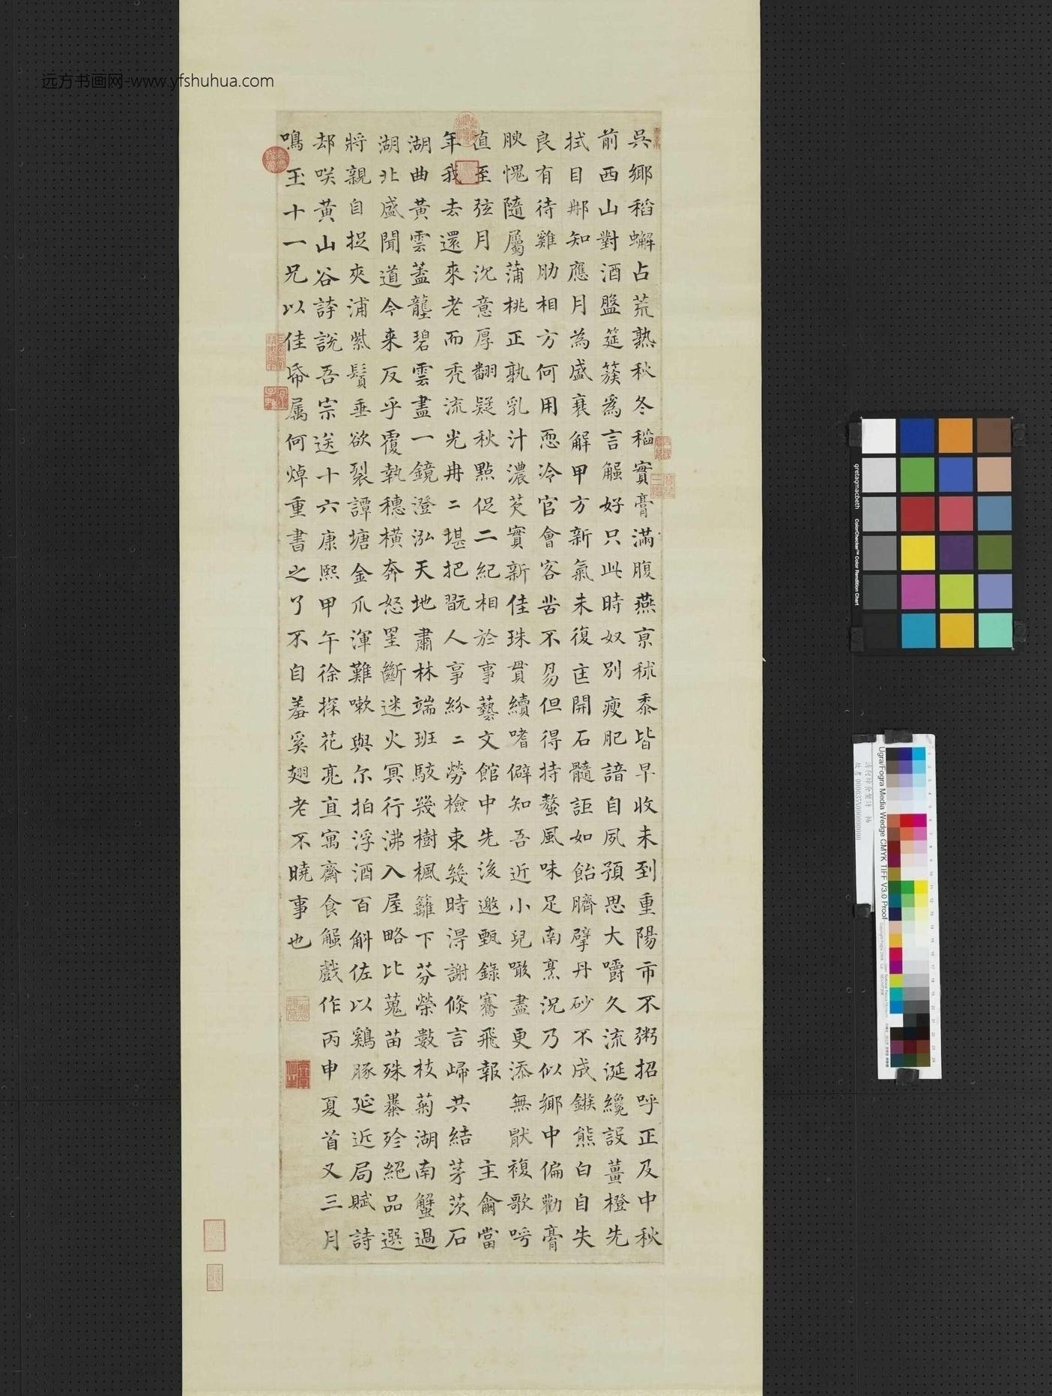 远方书画网-www.yfshuhua.com
吳鄉稻蠏占荒熟秋冬稻實膏滿腹燕京秫黍皆早收未到重陽市不粥招呼正及中秋
前西山對酒盤筵簇爲言蟹好只此時奴別瘦肥諳自夙預思大嚼久流涎纔設薑橙先
拭目那知應月為盛衰解甲方新氣未復匡開石髓詎如飴臍擘丹砂不成鏃熊白自失
良有待雞肋相方何用恧冷官會客苦不易但得持螯風味足南烹況乃似鄉中偏勸膏
腴愧隨屬蒲桃正孰乳汁濃芡實新佳珠貫續嗜僻知吾近小兒噉盡更添無猒複歌呼
直至弦月沉意厚翻疑秋點促二紀相於事藝文館中先後邀甄錄騫飛報 主龠當
年我去還來老而禿流光冉二堪把翫人事紛二勞檢束幾時淂謝倏言歸共結茅茨石
湖曲黃雲蓋壟碧雲盡一鏡澄泓天地肅林端班駮幾樹楓籬下芬榮數枝菊湖南蟹過
湖北盛聞道今来反乎覆執穗橫奔怒罣斷迷火冥行沸入屋略比蒐苗殊暴殄絕品選
將親自捉夾浦紫鬚垂欲裂譚塘金爪渾難嗽與尔拍浮酒百斛佐以鷄豚延近局賦詩
却咲黃山谷詩說吾宗送十六康熙甲午徐探花亮直寓齋食蟹戲作丙申夏首又三月
鳴玉十一兄以佳帋属何焯重書之了不自羞奚翅老不曉事也